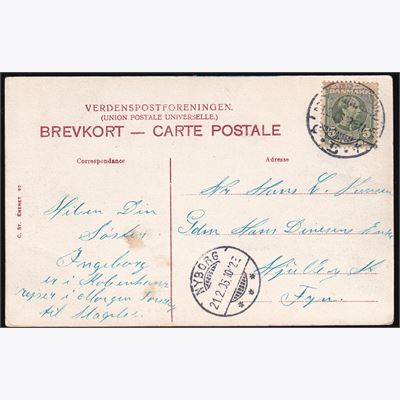 VERDENSPOSTFORENINGEN.
(UNION POSTALE UNIVERSELLE.)
BREVKORT — CARTE POSTALE
DANMARK
5
Correspondance
Adresse
C. St. Eneret 80
Hilsen Din
Søster
Ingeborg
er i København
rejser i Morgen
til Slagelse.
Hr Hans C. Hansen
Gdm Hans
Fyn.
NYBORG
21.2.06.10-2E